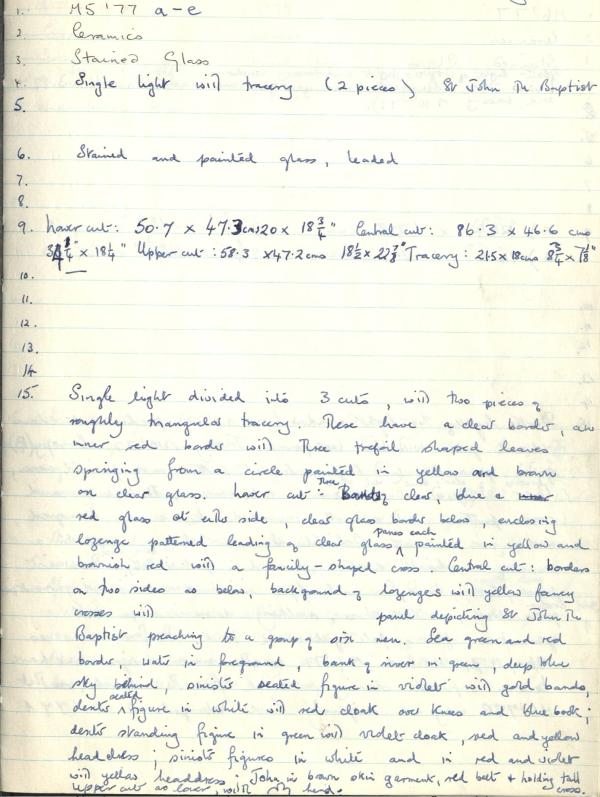 1. MS '77 a-e
2. Ceramics
3. Stained Glass
4. Single light with tracery (2 pieces) St John The Baptist
5.
6. Stained and painted glass, leaded
7.
8.
9. Lower cut: 50.7 x 47.3 cms 20 x 18 3/4" Central cut: 86.3 x 46.6 cms
34 x 18 1/4" Upper cut: 58.3 x 47.2 cms 18 1/2 x 22 7/8" Tracery: 21.5 x 18 cms 8 3/4 x 7 1/8"
10.
11.
12.
13.
14
15. Single light divided into 3 cuts, with two pieces of
roughly triangular tracery. These have a clear border, an
inner red border with three trefoil shaped leaves
springing from a circle painted in yellow and brown
on clear glass. Lower cut: Three Bands of clear, blue &
red glass at either side, clear glass border below, enclosing
lozenge patterned leading of clear glass panes each painted in yellow and
brownish red with a family-shaped cross. Central cut: borders
on two sides as below, background of lozenges with yellow fancy
crosses with panel depicting St John The
Baptist preaching to a group of six men. Sea green and red
border, water in foreground, bank of river in green, deep blue
sky behind, sinister seated figure in violet with gold bands,
dexter seated figure in white with red cloak over knees and blue book;
dexter standing figure in green with violet cloak, red and yellow
headdress; sinister figures in white and in red and violet
with yellow headdress; John in brown skin garment, red belt & holding tall cross.
Upper cut as lower, with hand.